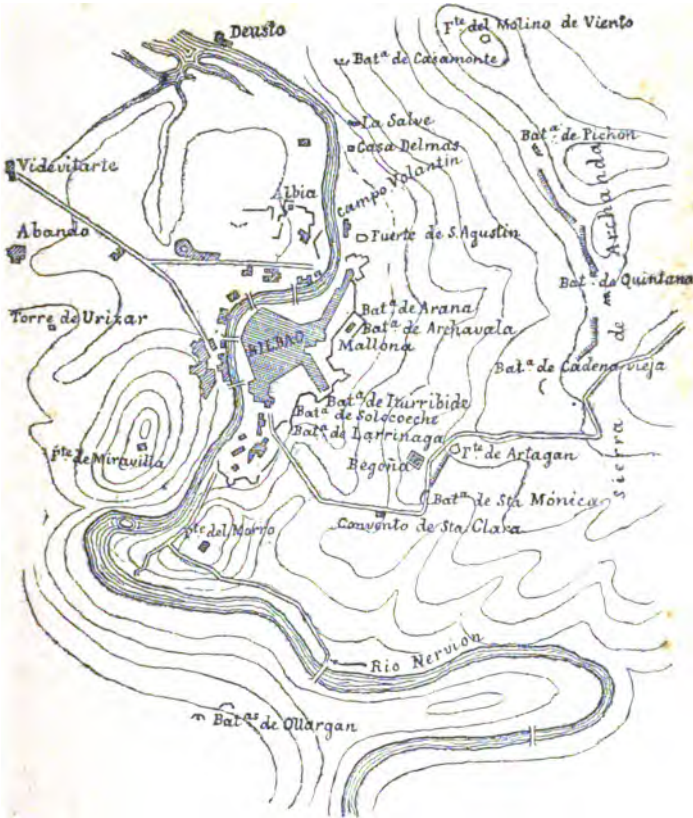 Deusto
Fᵗᵉ del Molino de Viento
Batᵃ de Casamonte
La Salve
Casa Delmas
Batᵃ de Pichon
Videvitarte
Albia
campo Volantin
Abando
Fuerte de S. Agustin
Sierra de Archanda
Batᵃ de Quintana
Torre de Urizar
Batᵃ de Arana
Batᵃ de Archavala
Mallona
BILBAO
Batᵃ de Cadena vieja
Batᵃ de Iturribide
Batᵃ de Solocoeche
Batᵃ de Larrinaga
Fᵗᵉ de Miravilla
Begoña
Fᵗᵉ de Artagan
Batᵃ de Sta Mónica
Convento de Sta Clara
Fᵗᵉ del Morro
Rio Nervión
Batᵃˢ de Ollargan